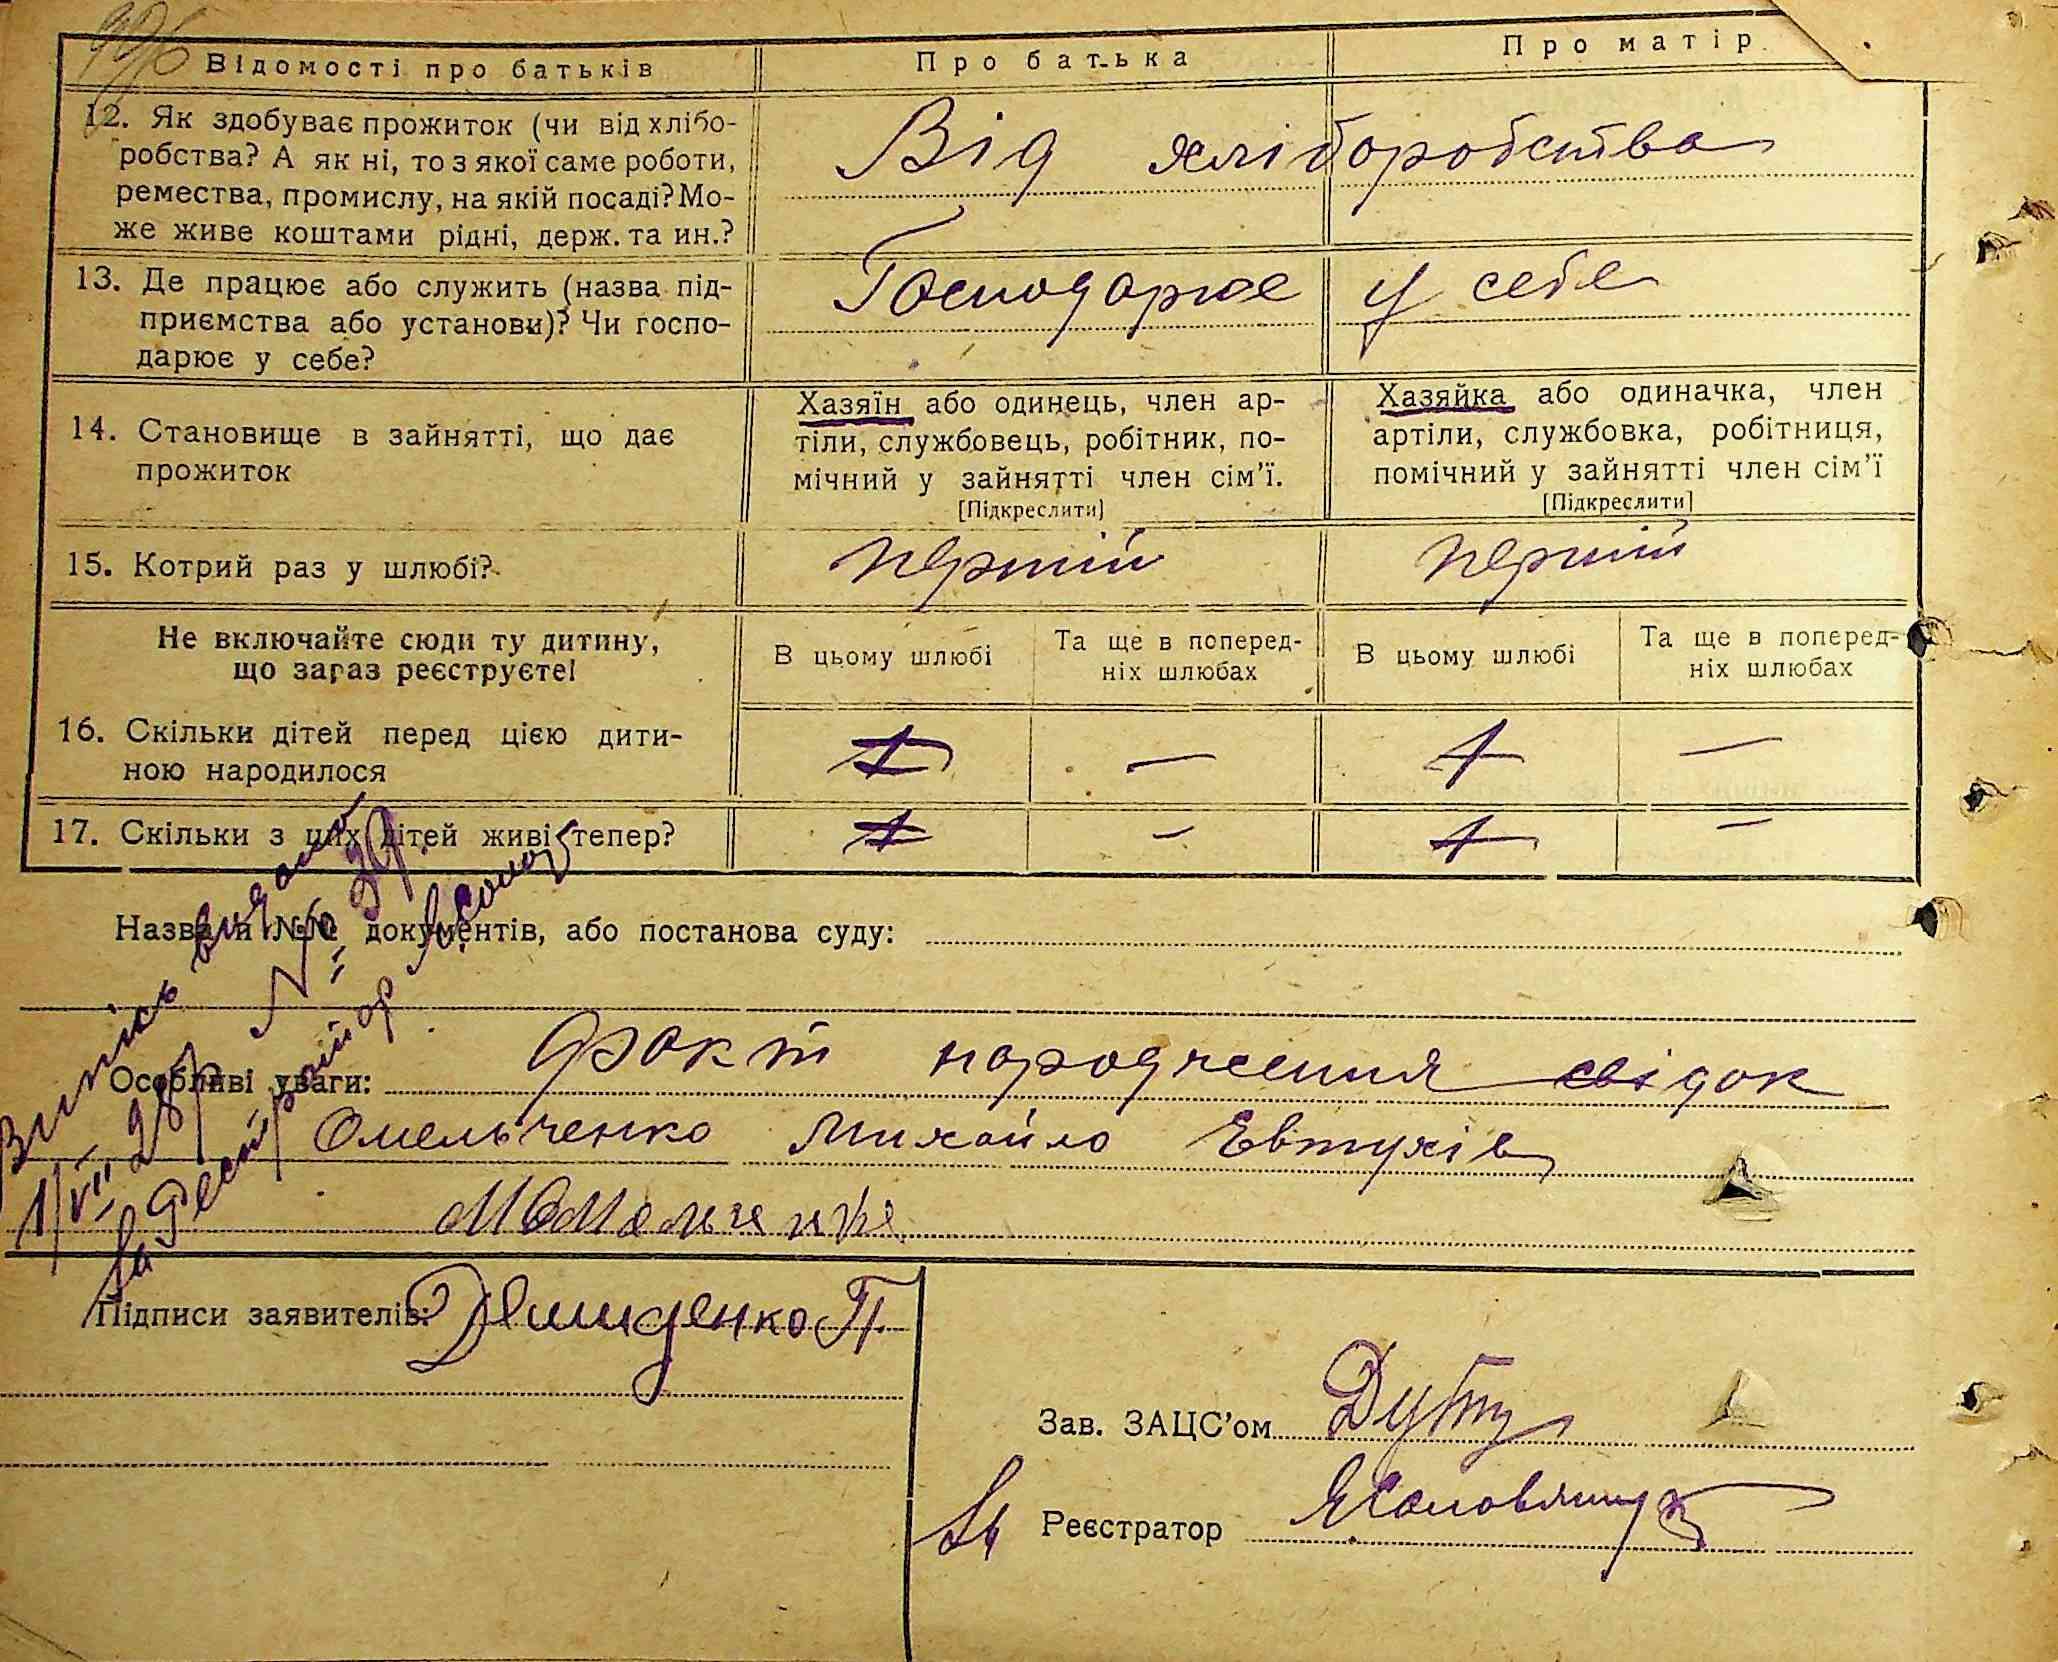 Відомості про батьків
Про батька
Про матір
12. Як здобуває прожиток (чи від хлібо-
робства? А як ні, то з якої саме роботи,
ремества, промислу, на якій посаді? Мо-
же живе коштами рідні, держ. та ин.?
Від хліборобства
13. Де працює або служить (назва під-
приємства або установи)? Чи госпо-
дарює у себе?
Господарює у себе
14. Становище в зайнятті, що дає
прожиток
Хазяїн або одинець, член ар-
тіли, службовець, робітник, по-
мічний у зайнятті член сім'ї.
[Підкреслити]
Хазяйка або одиначка, член
артіли, службовка, робітниця,
помічний у зайнятті член сім'ї
[Підкреслити]
15. Котрий раз у шлюбі?
перший
перший
Не включайте сюди ту дитину,
що зараз реєструєте!
В цьому шлюбі
Та ще в поперед-
ніх шлюбах
В цьому шлюбі
Та ще в поперед-
ніх шлюбах
16. Скільки дітей перед цією дити-
ною народилося
—
—
17. Скільки з цих дітей живі тепер?
—
—
Назва й №№ документів, або постанова суду:
Випись видано
1/VII 28р № 39.
Особливі уваги: Факт народження свідок
Омельченко Михайло Євтухів
Підписи заявителів: Демиденко П.
Зав. ЗАЦС'ом
Реєстратор